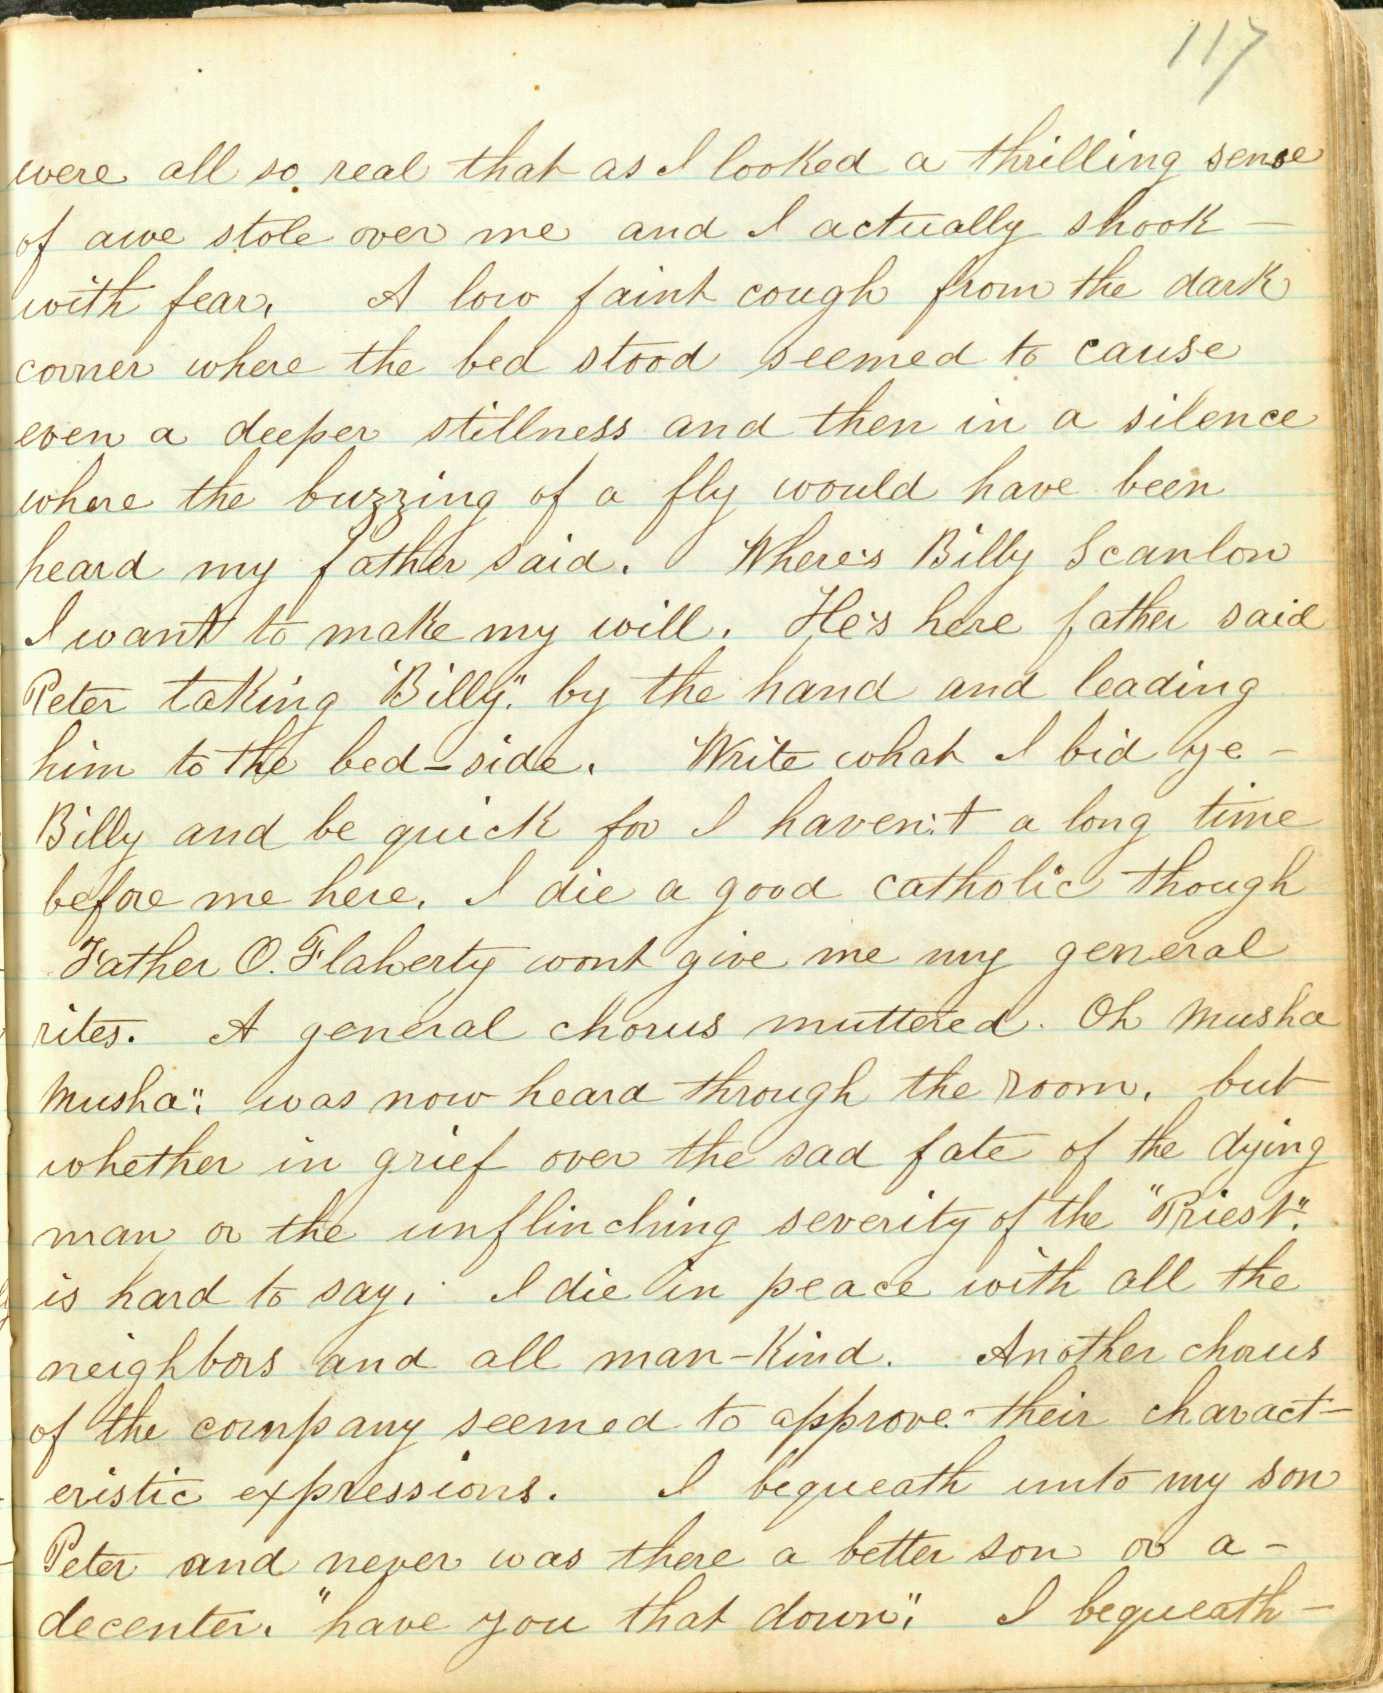 117
were all so real that as I looked a thrilling sense
of awe stole over me and I actually shook –
with fear. A low faint cough from the dark
corner where the bed stood seemed to cause
even a deeper stillness and then in a silence
where the buzzing of a fly would have been
heard my father said. Where's Billy Scanlon
I want to make my will. He's here father said
Peter taking "Billy". by the hand and leading
him to the bed-side. Write what I bid ye –
Billy and be quick for I haven't a long time
before me here. I die a good catholic though
Father O. Flaherty wont give me my general
rites. A general chorus muttered. Oh musha
musha". was now heard through the room. but
whether in grief over the sad fate of the dying
man or the unflinching severity of the "Priest".
is hard to say. I die in peace with all the
neighbors and all man-kind. Another chorus
of the company seemed to approve their charact-
eristic expressions. I bequeath unto my son
Peter and never was there a better son or a –
decenter. "have you that down". I bequeath –